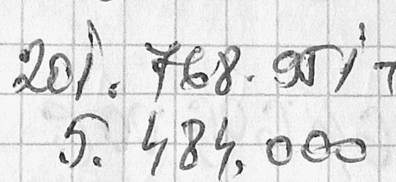 201. 768. 951
5. 484,000